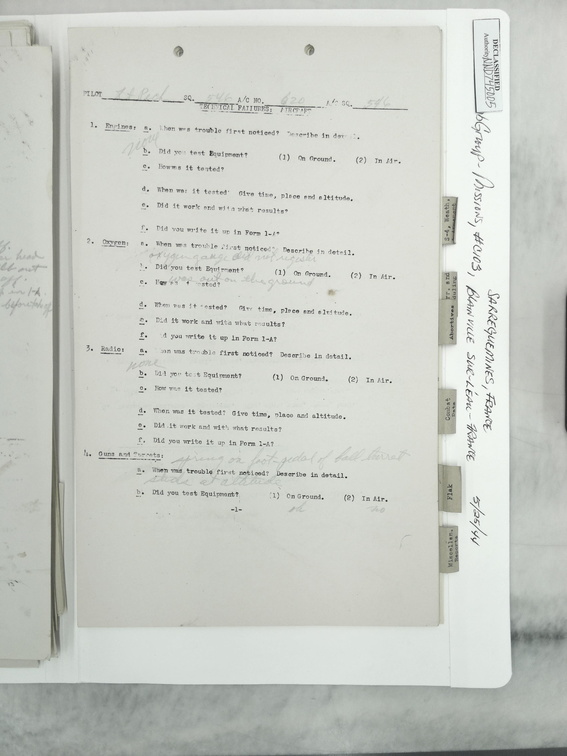 PILOT SQ. 546 A/C NO. 620 A/C SQ. 546
TECHNICAL FAILURES:
1. Engines: a. When was trouble first noticed? Describe in detail.
b. Did you test Equipment? (1) On Ground. (2) In Air.
c. How was it tested?
d. When was it tested? Give time, place and altitude.
e. Did it work and with what results?
f. Did you write it up in Form 1-A?
2. Oxygen: a. When was trouble first noticed? Describe in detail.
oxygen gauge did not register
b. Did you test Equipment? (1) On Ground. (2) In Air.
was out on the ground
c. How was it tested?
d. When was it tested? Give time, place and altitude.
e. Did it work and with what results?
f. Did you write it up in Form 1-A?
3. Radio: a. When was trouble first noticed? Describe in detail.
none
b. Did you test Equipment? (1) On Ground. (2) In Air.
c. How was it tested?
d. When was it tested? Give time, place and altitude.
e. Did it work and with what results?
f. Did you write it up in Form 1-A?
4. Guns and Turrets: spring in foot pedal of ball turret
a. When was trouble first noticed? Describe in detail.
at altitude
b. Did you test Equipment? (1) On Ground. (2) In Air.
ok no
-1-
5
DECLASSIFIED
Authority NND745005
Group - Missions, #CN03, SARREGUEMINES, FRANCE
BLAINVILLE SUR-L'EAU - FRANCE 5/25/44
Combat
Data
Flak